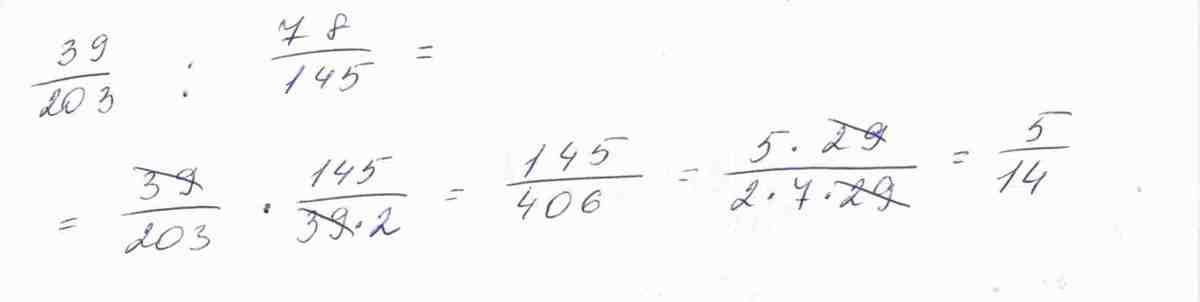 39/203 : 78/145 =
= 39/203 · 145/39·2 = 145/406 = 5·29/2·7·29 = 5/14